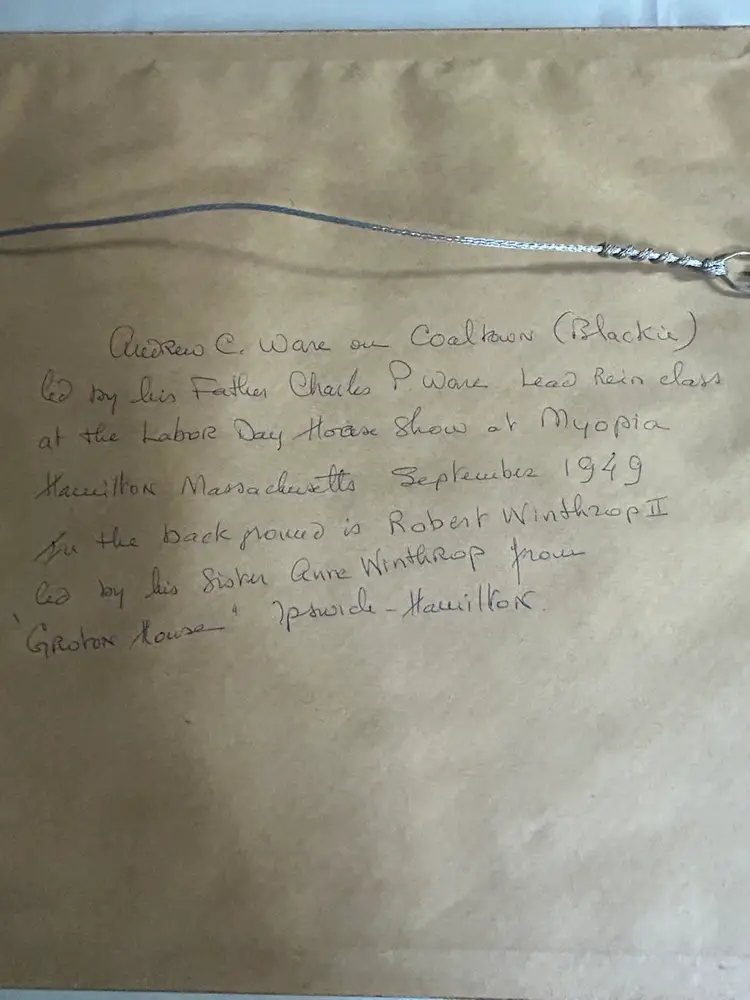 Andrew C. Ware on Coaltown (Blackie)
led by his Father Charles P. Ware Lead Rein class
at the Labor Day Horse Show at Myopia
Hamilton Massachusetts September 1949
In the background is Robert Winthrop II
led by his Sister Anne Winthrop from
"Groton House" Ipswich - Hamilton.